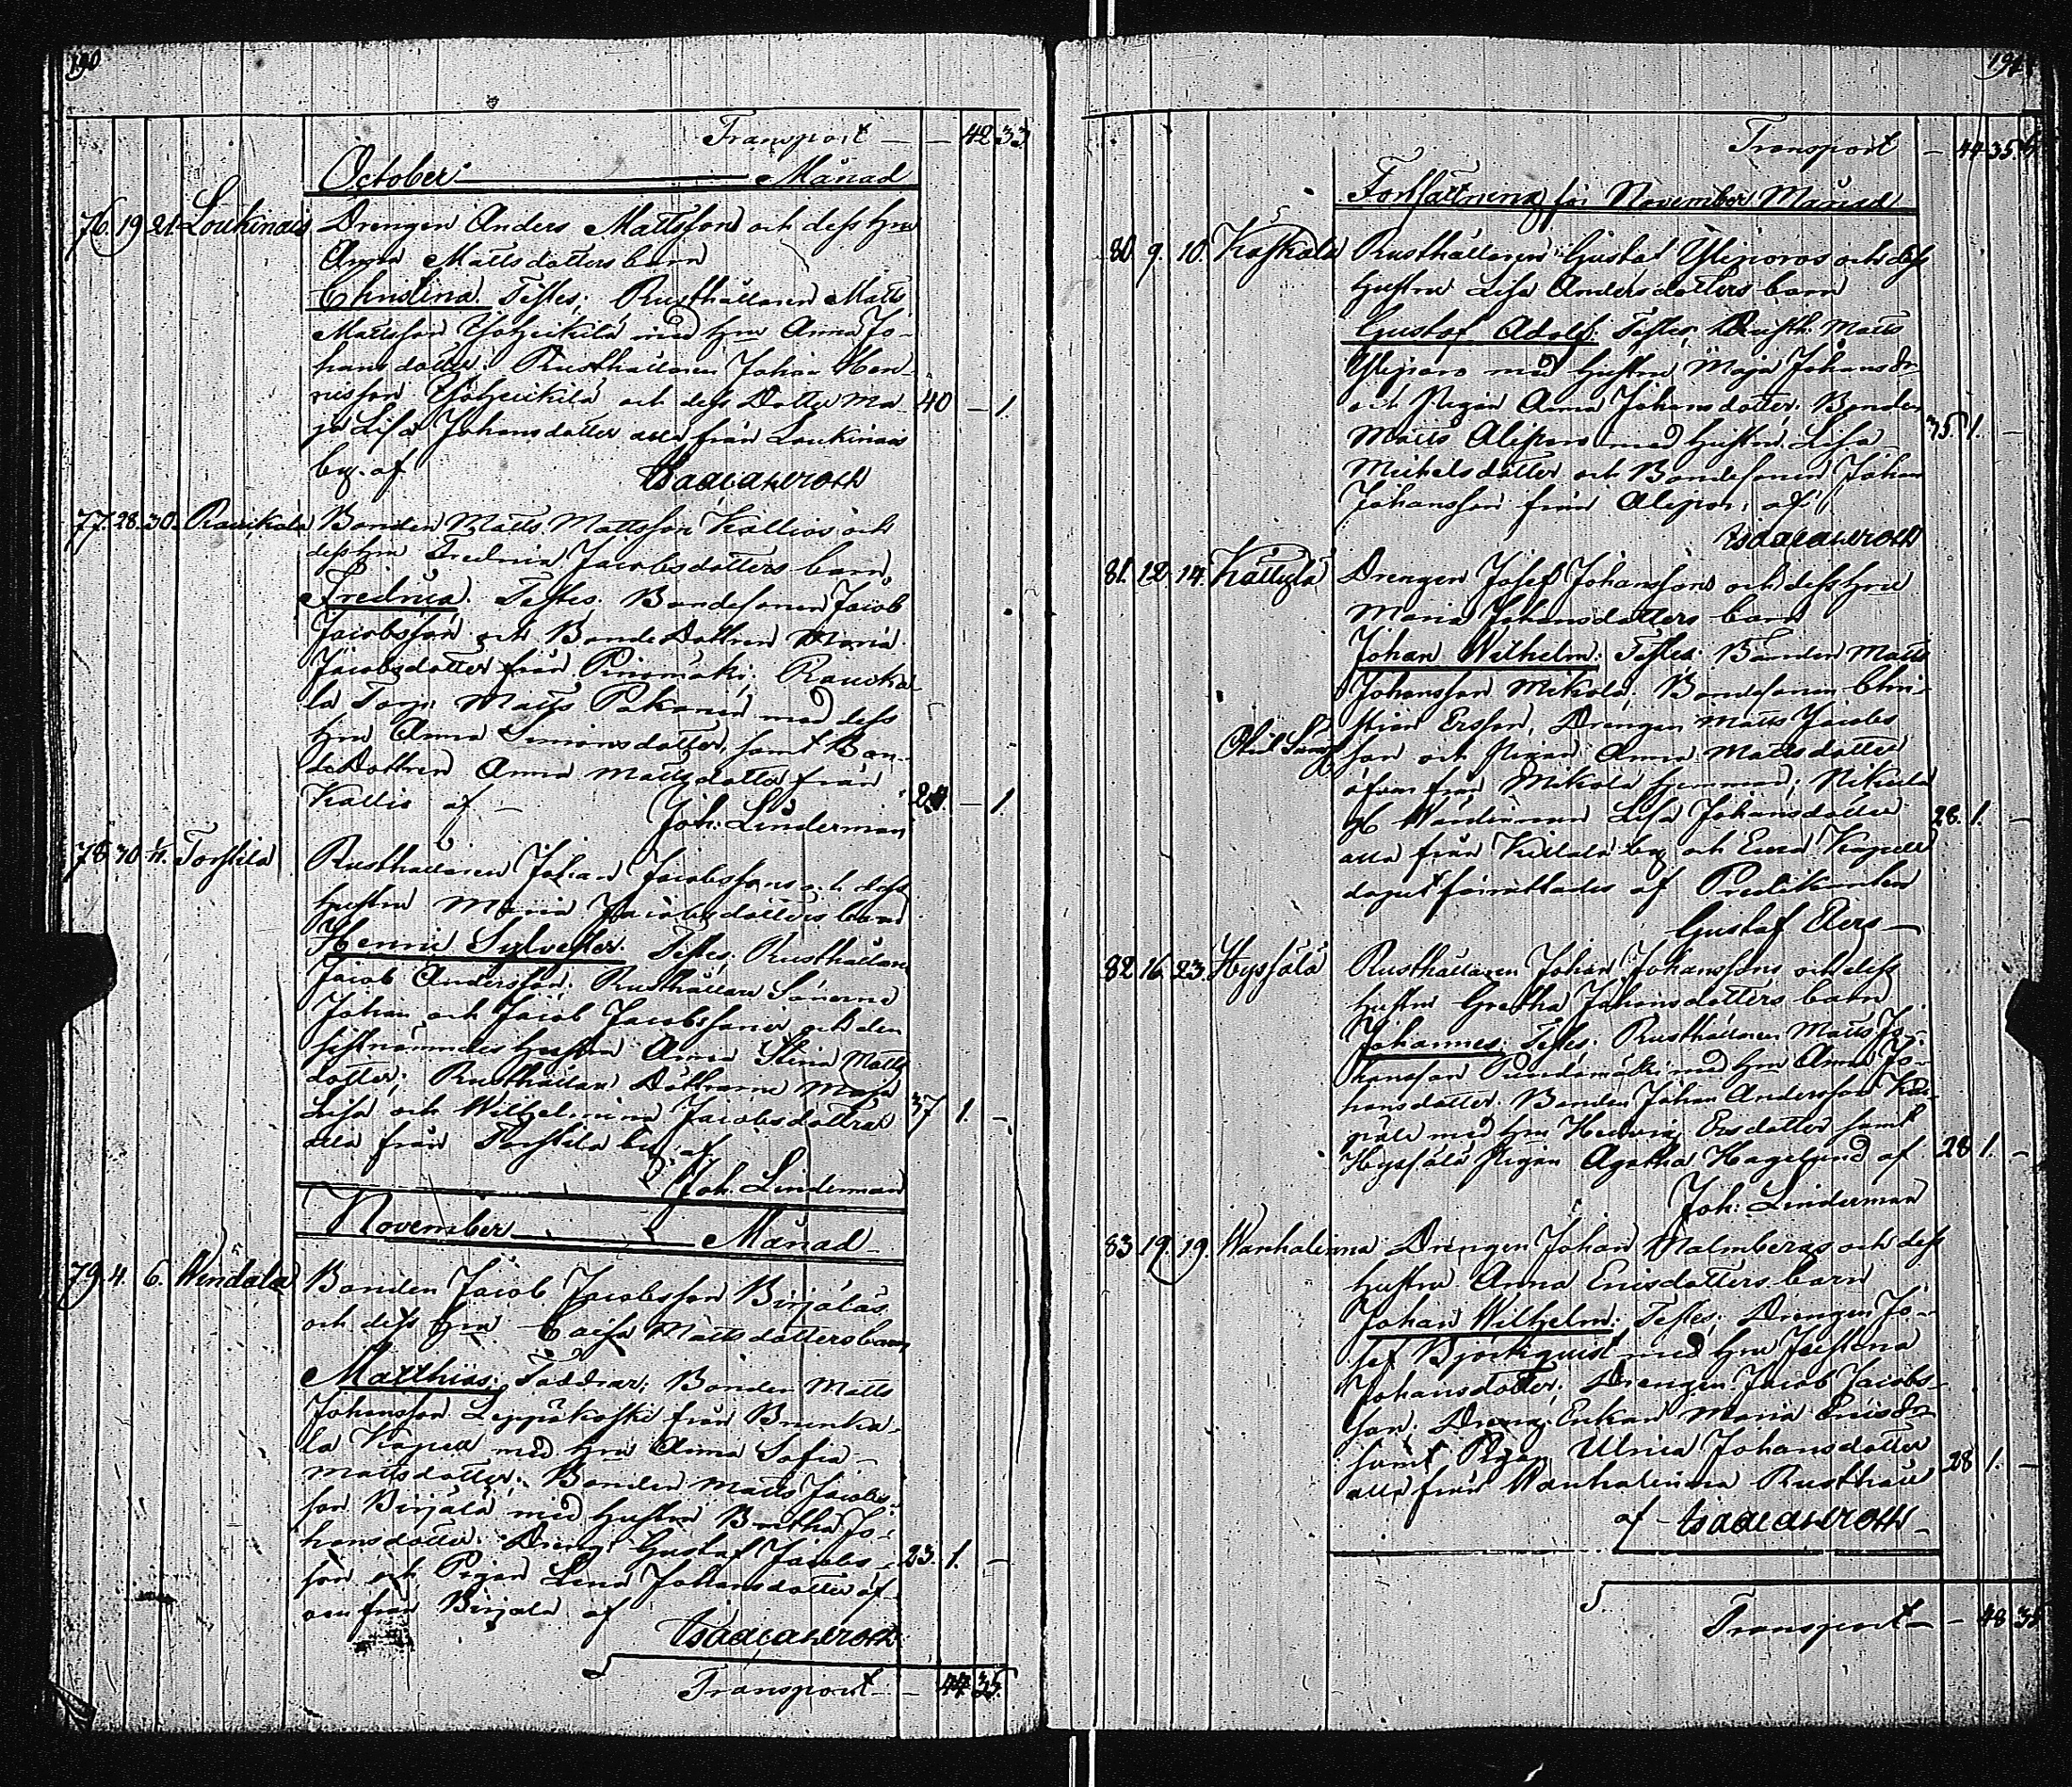 190
Transport — — 42 33
October — Månad
76. 19 21 Loukinais Drengen Anders Mattsson och dess hru
Anna Mattsdotters barn
Christina. Testes: Rusthållaren Matts
Mattsson Yliheikilä med hru Anna Jo-
hansdotter. Rusthållaren Johan Hen-
ricsson och dess Dotter Ma- 40 — 1.
ja Lisa Johansdotter alla från Loukinais
by. af
77. 28. 30. Rauvikala Bonden Matts Mattsson Kallios och
dess hru Fredrica Jacobsdotters barn
Fredrica. Testes: Bondesonen Jacob
Jacobsson och BondeDottren Maria
Jacobsdotter från Pinomäki; Rauvika-
la Torp. Matts Pakanen med dess
hru Anna Simonsdotter, samt Bon-
deDottren Anna Mattsdotter från
Kallio af — 24 — 1.
Joh. Linderman
78 30 Torkkila Rusthållaren Johan Jacobssons och dess
hustru Maria Jacobsdotters barn
Henric Sylvester. Testes: Rusthållare
Jacob Andersson. Rusthållare Sönerne
Johan och Jacob Jacobssöner och den
sistnämndes hustru Anna Stina Matts
dotter; Rusthållare Döttrarne Maja
Lisa och Wilhelmina Jacobsdöttrar 37 1. —
alla från by. af
Joh. Linderman
November — Månad
79. 4. 6. Wendala Bonden Jacob Jacobsson Birjäläs
och dess hru Caisa Mattsdotters barn
Matthias. Faddrar: Bonden Matts
Johansson Leppäkoski från Brunka-
la Kapell med hru Anna Sofia
Mattsdotter; Bonden Matts Jacobs-
son Birjälä med hustru Bertha Jo-
hansdotter. Dreng. Gustaf Jacobs- 23. 1. —
son och Pigan Lena Johansdotter äf-
ven från Birjälä af
Transport — — 44 35.
191
Transport — 44 35.
Fortsättning för November Månad
80. 9. 10. Kaskala Rusthållaren Gustaf Yliporos och dess
hustru Lisa Andersdotters barn
Gustaf Adolf. Testes; Rusth. Matts
Yliporo med hustru Maja Johansdr
och Pigan Anna Johansdotter. Bonden
Matts Aliporo med hustru Lisa 35. 1.
Michelsdotter och Bondesonen Johan
Johansson från Aliporo, af
81. 12. 14. Kättylä Drengen Josef Johanssons och dess hru
Maria Johansdotters barn
Johan Wilhelm. Testes: Bonden Matts
Johansson Mikola. Bondesonen Chri-
stian Ersson, Drengen Matts Jacobs
son och Pigan Anna Mattsdotter
äfven från Mikola hemman; Nikula
Lisa Johansdotter 28. 1. —
alla från by och Eura Kapell
dopet förrättades af Predikanten
Gustaf
82. 16. 23. Hyssälä Rusthållaren Johan Johanssons och dess
hustru Gretha Johansdotters barn
Johannes. Testes: Rusthållaren Matts Jo-
hansson med hru Anna Jo-
hansdotter. Bonden Johan Andersson
med hru Hedvig Ersdotter samt
Hyssälä Pigan Agatha Hagelund af 28 1. —
Joh. Linderman
83. 19. 19. Wanhalinna Drengen Johan Malmbergs och dess
hustru Anna Ericsdotters barn
Johan Wilhelm. Testes; Drengen Jo-
sef Björkqvist med hru Justina
Johansdotter. Drengen Jacob Jacobs-
son. Dreng. Enkan Maria Ericsdr
samt Pigan Ulrica Johansdotter
alla från Wanhalinna Rusthåll 28 1. —
af
Transport — — 48 35